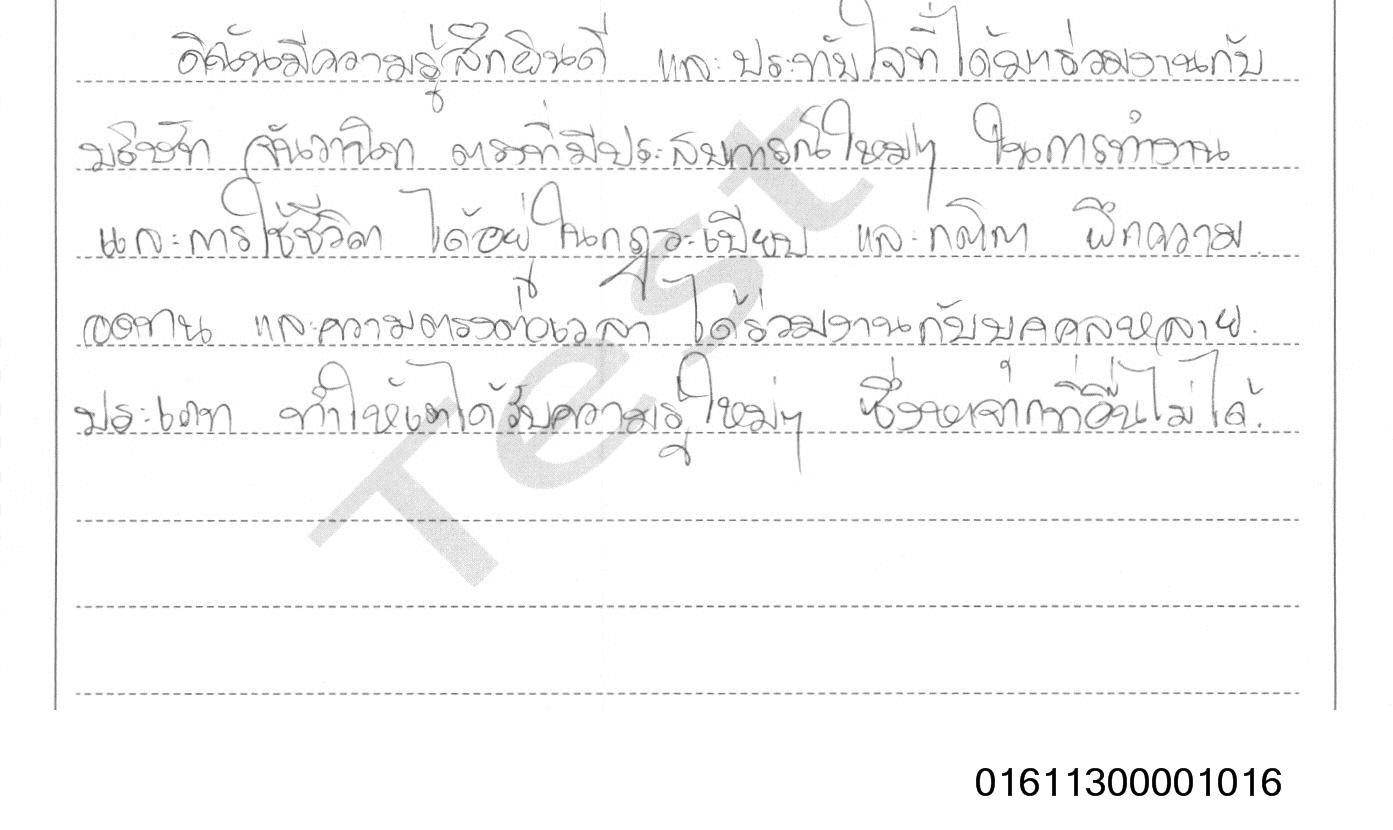 ดิฉันมีความรู้สึกยินดี และประทับใจที่ได้มาร่วมงานกับ
บริษัท จันวาณิชท ตรงที่มีประสบการณ์ใหม่ๆ ในการทำงาน
และการใช้ชีวิต ได้อยู่ในกฎระเบียบ และกติกา ฝึกความ
อดทน และความตรงต่อเวลา ได้ร่วมงานกับบุคคลหลาย
ประเภท ทำให้เราได้รับความรู้ใหม่ๆ ซึ่งหาจากที่อื่นไม่ได้
Test
01611300001016